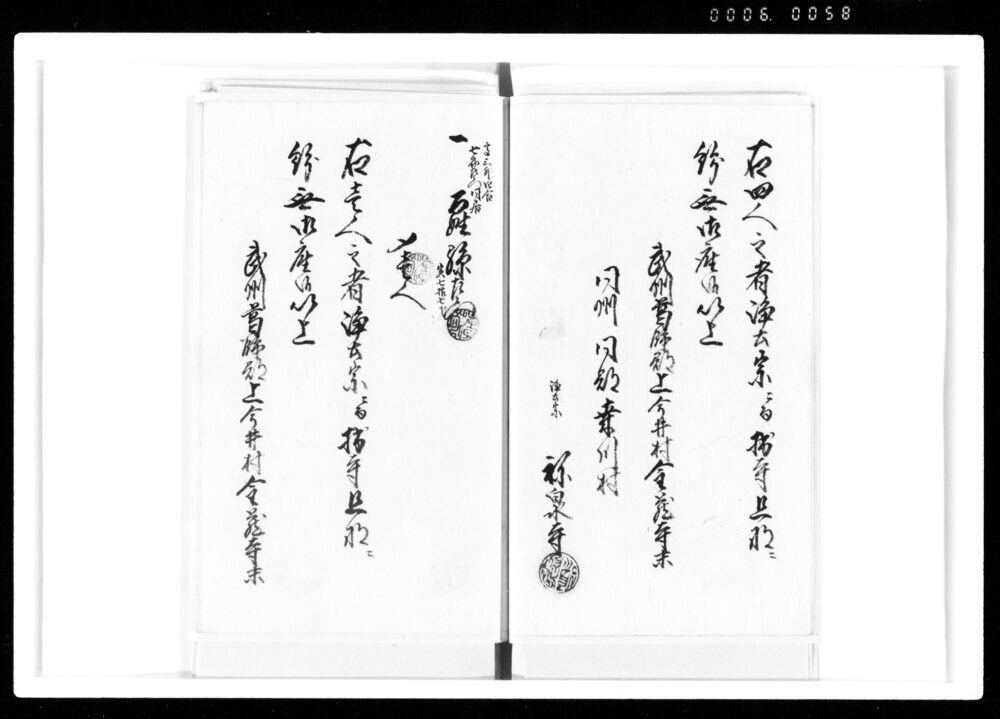 0006. 0058
右四人之者浄土宗ニ而拙寺旦那ニ
紛無御座候以上
武州葛飾郡上今井村金蔵寺末
同州同郡桑川村
浄土宗
泉寺
一
孫
年七拾七才
〆壱人
右壱人之者浄土宗ニ而拙寺旦那ニ
紛無御座候以上
武州葛飾郡上今井村金蔵寺末